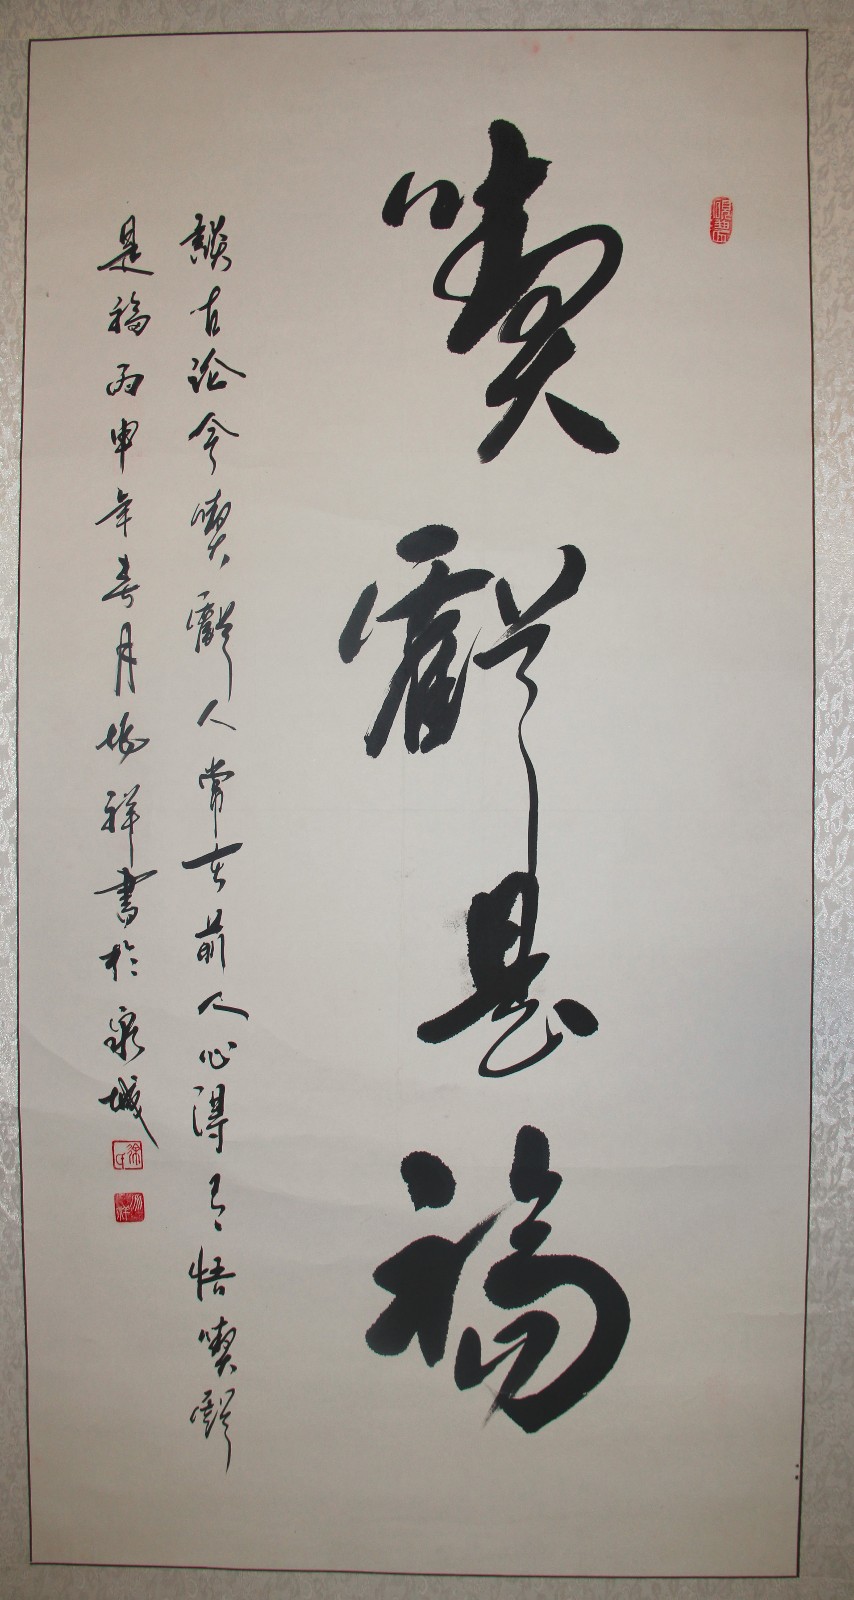 喫虧是福
談古论今喫虧人常在前人心得之悟喫虧
是福丙申年春月 祥書於泉城